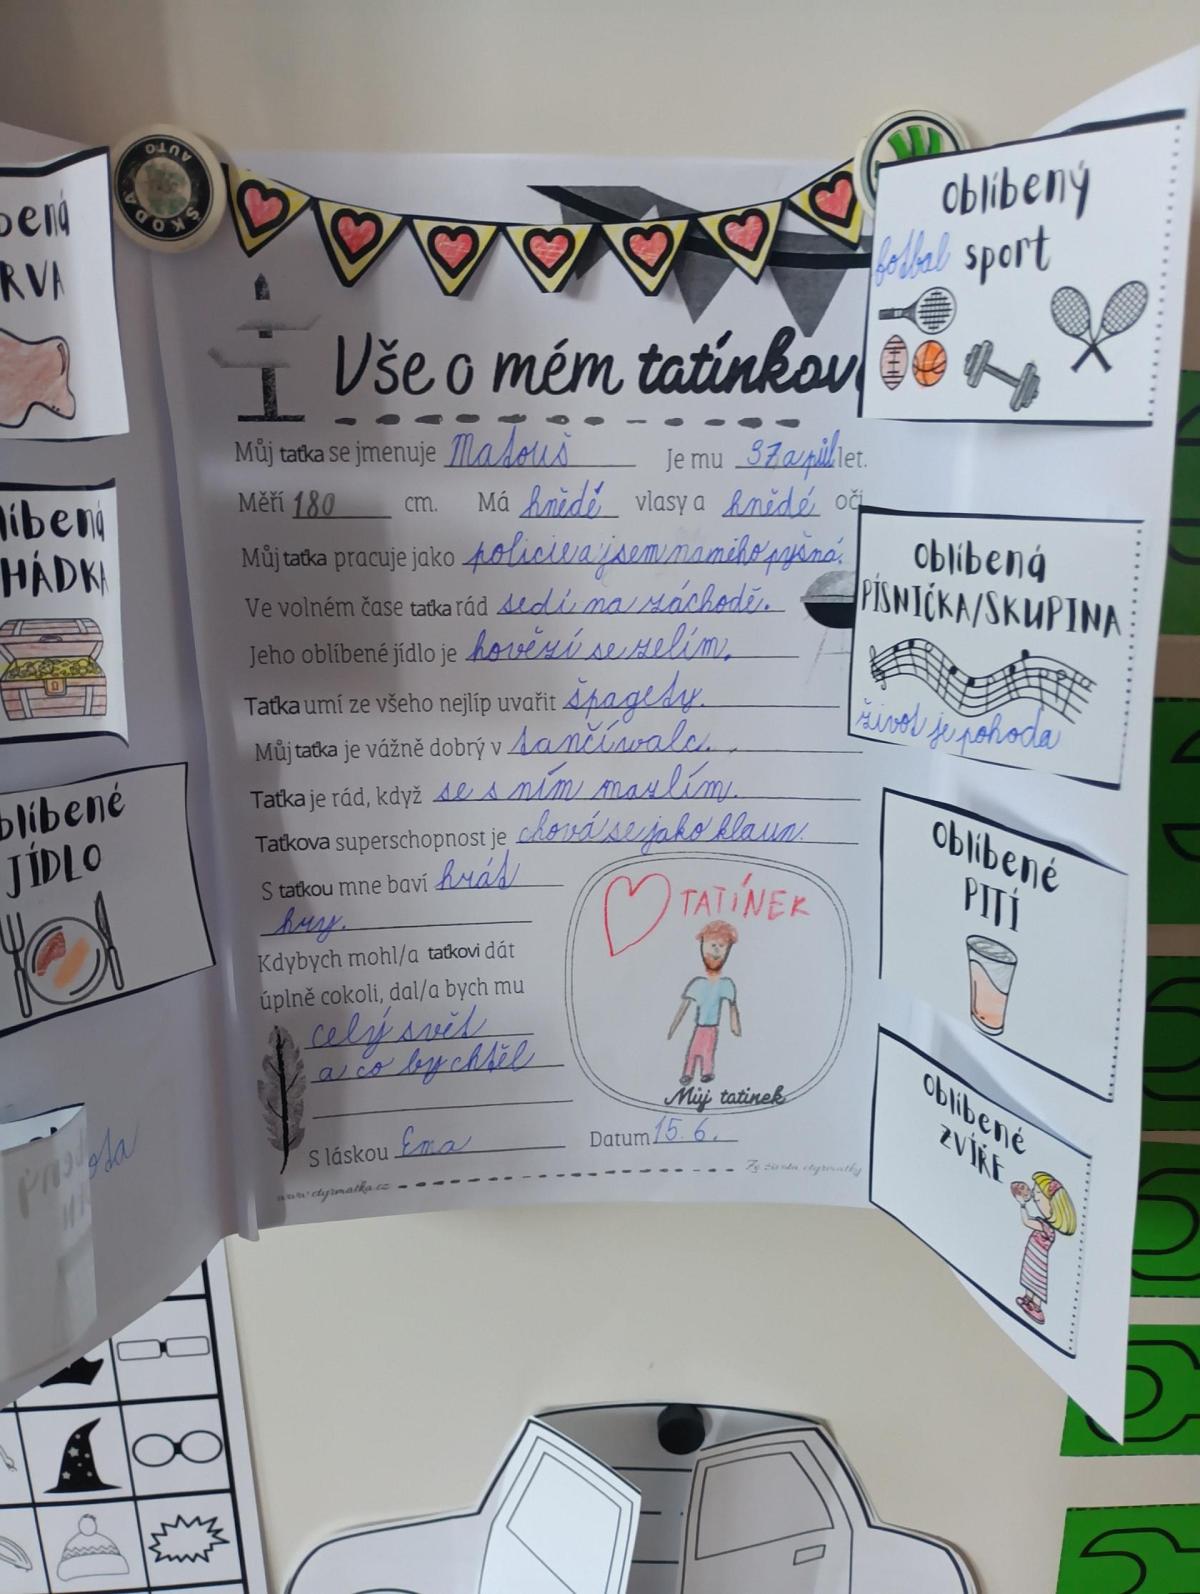 ŠKODA
AUTO
Vše o mém tatínkov
Můj taťka se jmenuje Matouš Je mu 37 a půl let.
Měří 180 cm. Má hnědé vlasy a hnědé oči
Můj taťka pracuje jako policie a jsem na mého pyšná.
Ve volném čase taťka rád sedí na záchodě.
Jeho oblíbené jídlo je hovězí se zelím.
Taťka umí ze všeho nejlíp uvařit špagety.
Můj taťka je vážně dobrý v tančí walc.
Taťka je rád, když se s ním mazlím.
Taťkova superschopnost je chová se jako klaun.
S taťkou mne baví hrát
hry.
Kdybych mohl/a taťkovi dát
úplně cokoli, dal/a bych mu
celý svět
a co by chtěl
TATÍNEK
Můj tatínek
S láskou Ema Datum 15. 6.
www.ctyrmatka.cz
bená
RVA
líbená
HÁDKA
blíbené
JÍDLO
Oblíbený
fotbal sport
Oblíbená
PÍSNIČKA/SKUPINA
život je pohoda
Oblíbené
PITÍ
Oblíbené
ZVÍŘE